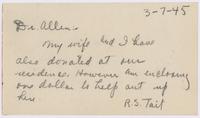 3-7-45
Dr. Allen:
My wife and I have
also donated at our
residence. However am enclosing
one dollar to help out up
here
R.S. Tait